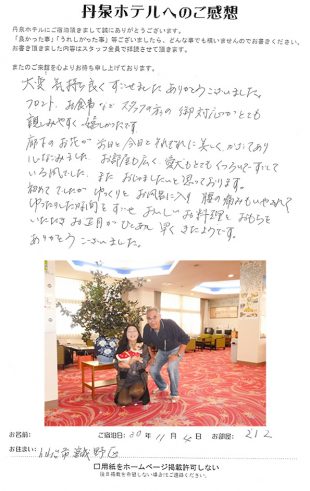 丹泉ホテルへのご感想
丹泉ホテルにご宿泊頂きまして誠にありがとうございます。
「良かった事」「うれしかった事」等ございましたら、どんな事でも構いませんのでお書きください。
お書き頂きました内容はスタッフ全員で拝読させて頂きます。
またのご来館を心よりお待ち申し上げております。
大変 気持ち良くすごせました。ありがとうございました。
フロント、お食事など スタッフの方の御対応がとても
親しみやすく 嬉しかったです。
廊下のお花が 昨日と今日とそれぞれに美しく
お部屋も広く、愛犬もとてもくつろいで
また おじゃましたいと思っております。
初めてでしたが ゆっくりと お風呂に入り 腰の痛みもいやされて
ゆったりした時間をすごせ おいしいお料理と おもちを
いただき お正月が ひと足 早く きたようです。
ありがとうございました。
お名前: ご宿泊日: 30年 11月 4日 お部屋: 212
お住まい: 仙台市 宮城野区
口用紙をホームページ掲載許可しない
後日掲載を希望しない場合はご連絡ください。